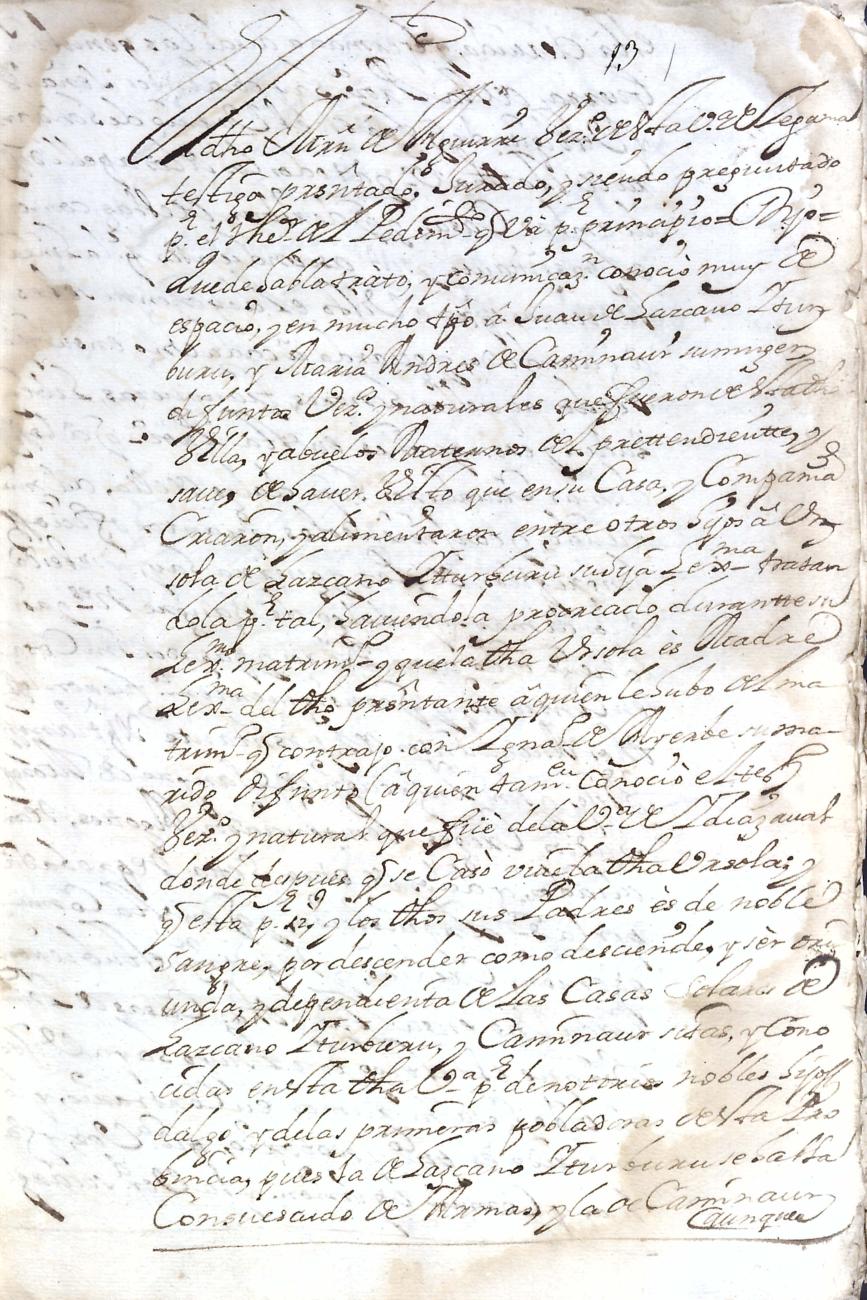 13
El dho Mrn de Aguirre Vezº de esta Vª de Segama
testigo presentado, Jurado, y siendo preguntado
pr el thenor del Pedimto q va pr principio = Dijo =
que de habla trato, y comunicazn conociò muy de
espacio, y en mucho tpo â Juan de Lazcano Ytur
buru, y Maria Andres de Camĩnaur su muger
difuntos Vezos y naturales que fueron de esta dha
Villa, y abuelos Maternos del prettendientte, y
save, de haver visto que en su Casa, y Compania
Criaron, y alimentaron entre otros hijos â Ur
sola de Lazcano Yturburu su hija Lexma tratan
dola pr tal, haviendola procreado durantte su
Lexmo matrimo y que la dha Ursola ês Madre
Lexma del dho presentante â quien le hubo del ma
trimo q contrajo con Ygnaº de Ayerbe su ma-
rido difunto (â quien tamvien conociò el testº
Vezº y natural que fuè de la Vª de Ydiazaval
donde despues q se Casò vive la dha Ursola; y
q esta pr si, y los dhos sus Padres ès de noble
sangre, por descender como desciende, y sèr ori
unda, y dependienta de las Casas Solares de
Lazcano Yturburu, y Camĩnaur sitas, y cono
cidas en esta dha Vª pr de notorios nobles hijos
dalgo y de las primeras pobladoras de esta Pro
bincia, pues la de Lazcano Yturburu se halla
Con su escudo de Armas, y la de Camĩnaur
aunque